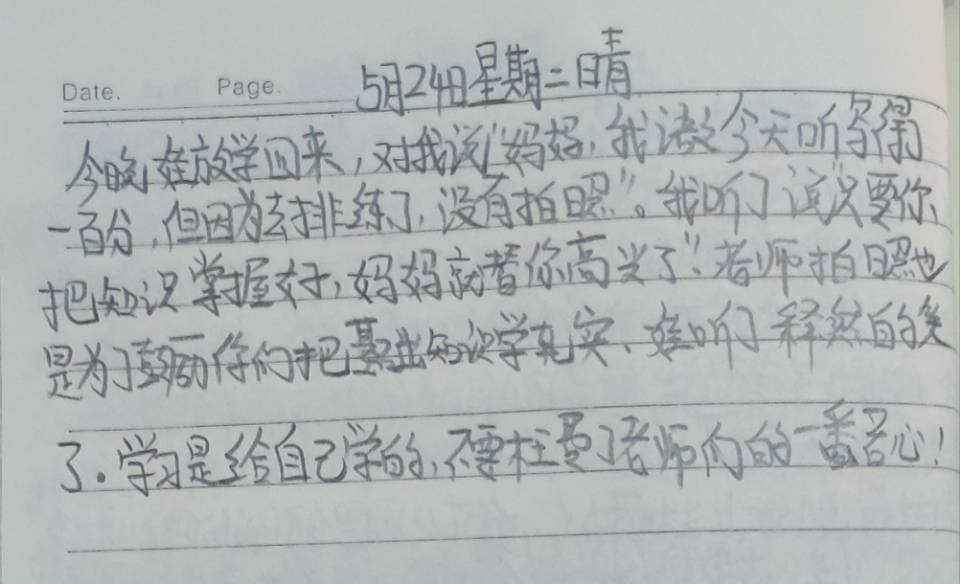 Date. Page. 5月24日星期二晴
今晚娃放学回来,对我说"妈妈,我语文今天听写得
一百分,但因为去排练了,没有拍照"。我听了说"只要你
把知识掌握好,妈妈就替你高兴了"老师拍照也
是为了鼓励你们把基础知识学扎实、娃听了释然的笑
了.学习是给自己学的,不要枉费了老师们的一番苦心!